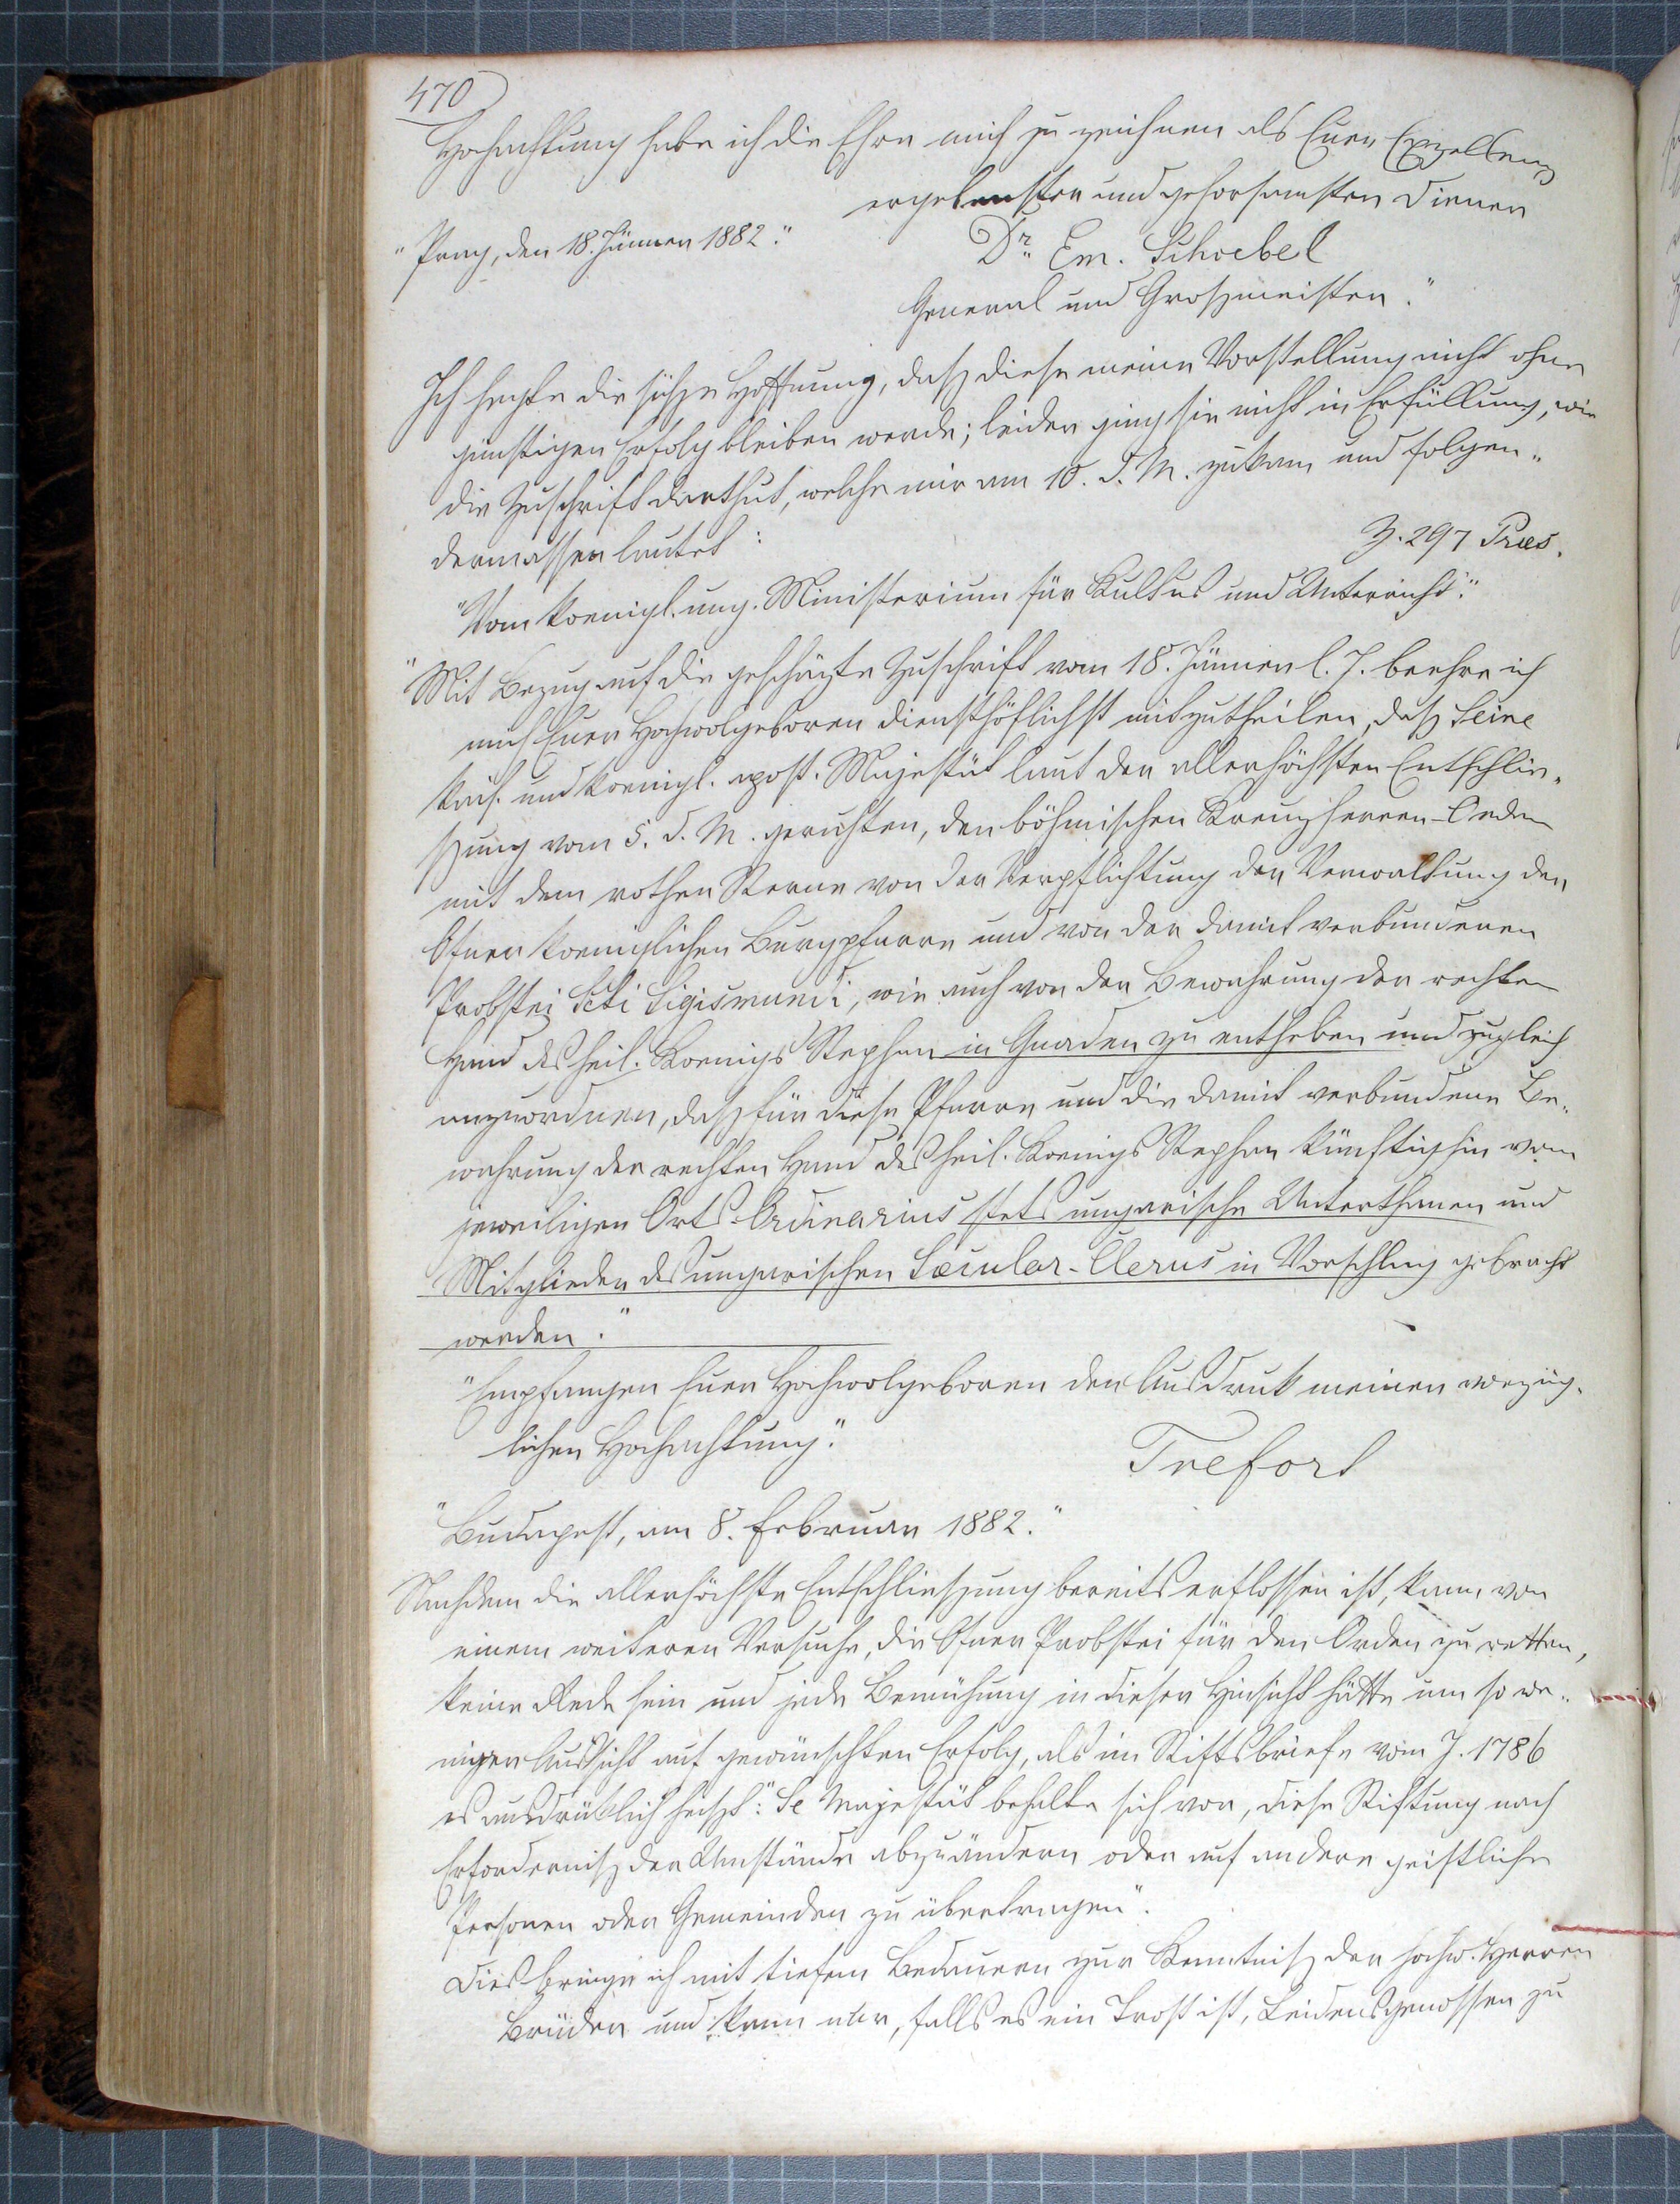 470
Hochachtung habe ich die Ehre mich zu zeichnen als Euer Exzellenz
ergebensten und gehorsamsten Diener
"Prag, den 18. Jänner 1882."
Dr. Em. Schoebel
General und Groszmeister."
Ich hegte die süsze Hoffnung, dasz diese meine Vorstellung nicht ohne
günstigen Erfolg bleiben werde; leider ging sie nicht in Erfüllung, wie
die Zuschrift darthut, welche mir am 10. d. M. zukam und folgen-
dermassen lautet:
Z. 297 Præs.
"Vom koenigl. ung. Ministerium für Kultus und Unterricht."
"Mit Bezug auf die geschäzte Zuschrift vom 18. Jänner l. J. beehre ich
mich Euer Hochwolgeboren diensthöflichst mitzutheilen, dasz Seine
kais. und koenigl. apost. Majestät laut der allerhöchsten Entschlie-
szung vom 5. d. M. geruhten, den böhmischen Kreuzherren-Orden
mit dem rothen Sterne von der Verpflichtung der Verwaltung der
Ofner koeniglichen Burgpfarre und von der damit verbundenen
Probstei Scti Sigismundi, wie auch von der Bewahrung der rechten
Hand des heil. Koenigs Stephan in Gnaden zu entheben und zugleich
anzuordnen, dasz für diese Pfarre und die damit verbundene Be-
wahrung der rechten Hand des heil. Koenigs Stephan künftighin vom
jeweiligen Orts-Ordinarius stets ungarische Unterthanen und
Mitglieder des ungarischen Sæcular-Clerus in Vorschlag gebracht
werden."
"Empfangen Euer Hochwolgeboren den Ausdruk meiner vorzüg-
lichen Hochachtung."
Trefort
"Budapest, am 8. Februar 1882."
Nachdem die allerhöchste Entschlieszung bereits erflossen ist, kann von
einem weiteren Versuche, die Ofner Probstei für den Orden zu retten,
keine Rede sein und jede Bemühung in dieser Hinsicht hätte um so we-
niger Aussicht auf gewünschten Erfolg, als im Stiftsbriefe vom J. 1786
es ausdrüklich heiszt: "Se Majestät behalte sich vor, diese Stiftung nach
Erfordernisz der Umstände abzuändern oder auf andere geistliche
Personen oder Gemeinden zu übertragen".
Dies bringe ich mit tiefem Bedauern zur Kenntnisz der hochw. Herren
Brüder und kann nur, falls es ein Trost ist, Leidensgenossen zu